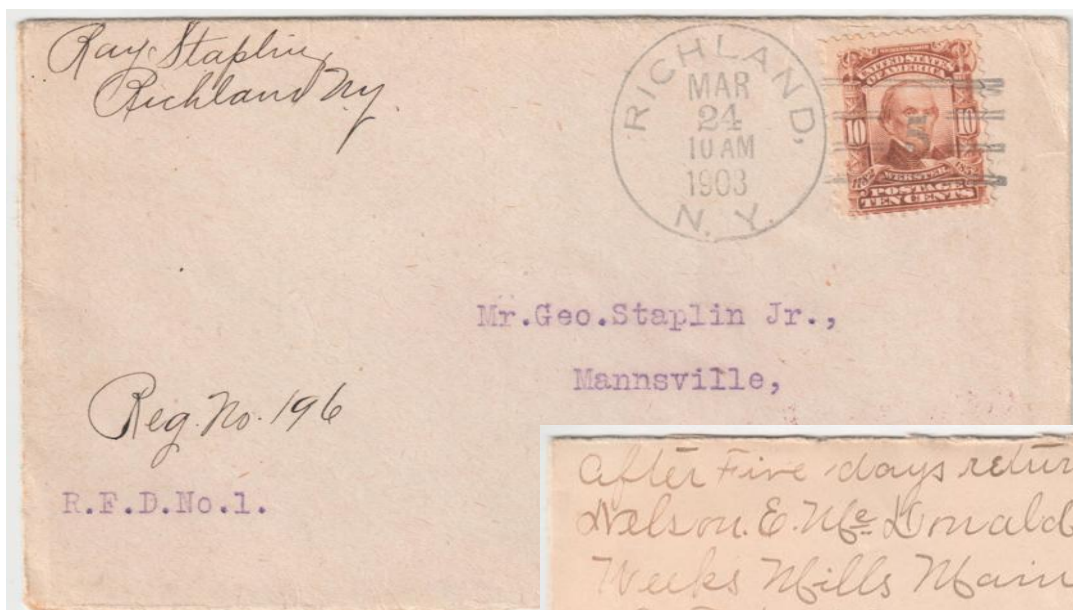 Ray Staplin
Richland Ny.
RICHLAND,
MAR
24
10 AM
1903
N. Y.
UNITED STATES
OF AMERICA
10 5 10
WEBSTER
POSTAGE
TEN CENTS
Mr.Geo.Staplin Jr.,
Mannsville,
Reg. No. 196
R.F.D.No.1.
After Five days retur
Nelson. E. Mc Donald
Weeks Mills Main